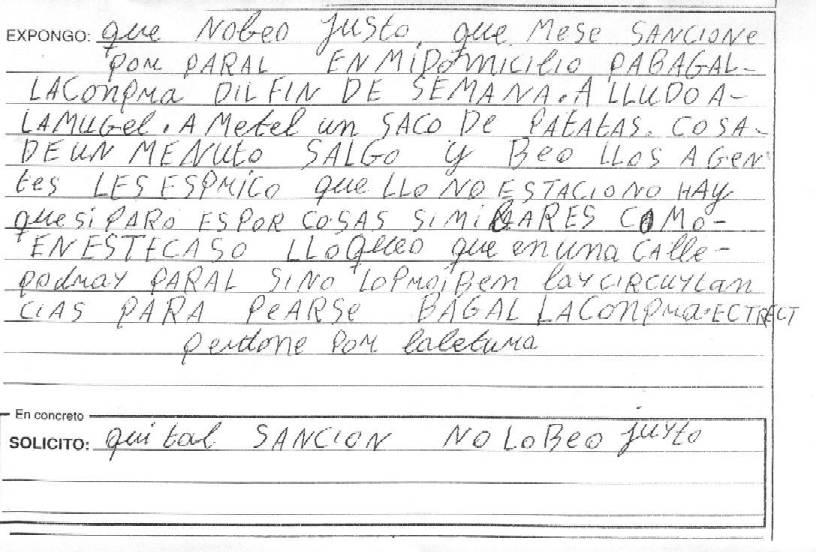 EXPONGO: que NoBeo justo que Mese SANCIONe
por PARAL EN MiDomiciLio PABAGAL-
LAConpra DIL FIN DE SEMANA. A LLUDO A-
LAMUGel. A Metel un SACO De PATATAS. COSA-
DE UN MENUTO SALGO y Beo LLOS AGEN
tes LES ESPRICO que LLO NO ESTACIONO HAY
que si PARO ES POR COSAS SIMILARES COMO-
ENESTECASO LLO QUEO que en una CAlle-
podray PARAL SINO LoProiBem lay CIRCUYtan
CIAS PARA PeARSe BAGAL LAConpra. ECTRECT
perdone por laletura
En concreto
SOLICITO: quital SANCION NO LoBeo juyto